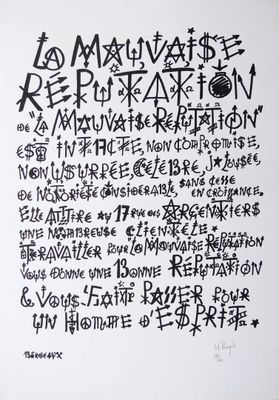 LA MAUVAISE
RÉPUTATION
DE "LA MAUVAISE RÉPUTATION"
EST INTACTE, NON COMPROMISE,
NON USURPÉE, CÉLÈBRE, JALOUSÉE,
DE NOTORIÉTÉ CONSIDÉRABLE, SANS CESSE
EN CROISSANCE.
ELLE ATTIRE AU 17 RUE DES ARGENTIERS
UNE NOMBREUSE CLIENTÈLE.
TRAVAILLER POUR LA MAUVAISE RÉPUTATION
VOUS DONNE UNE BONNE RÉPUTATION
& VOUS FAIT PASSER POUR
UN HOMME D'ESPRIT
BORDEAUX